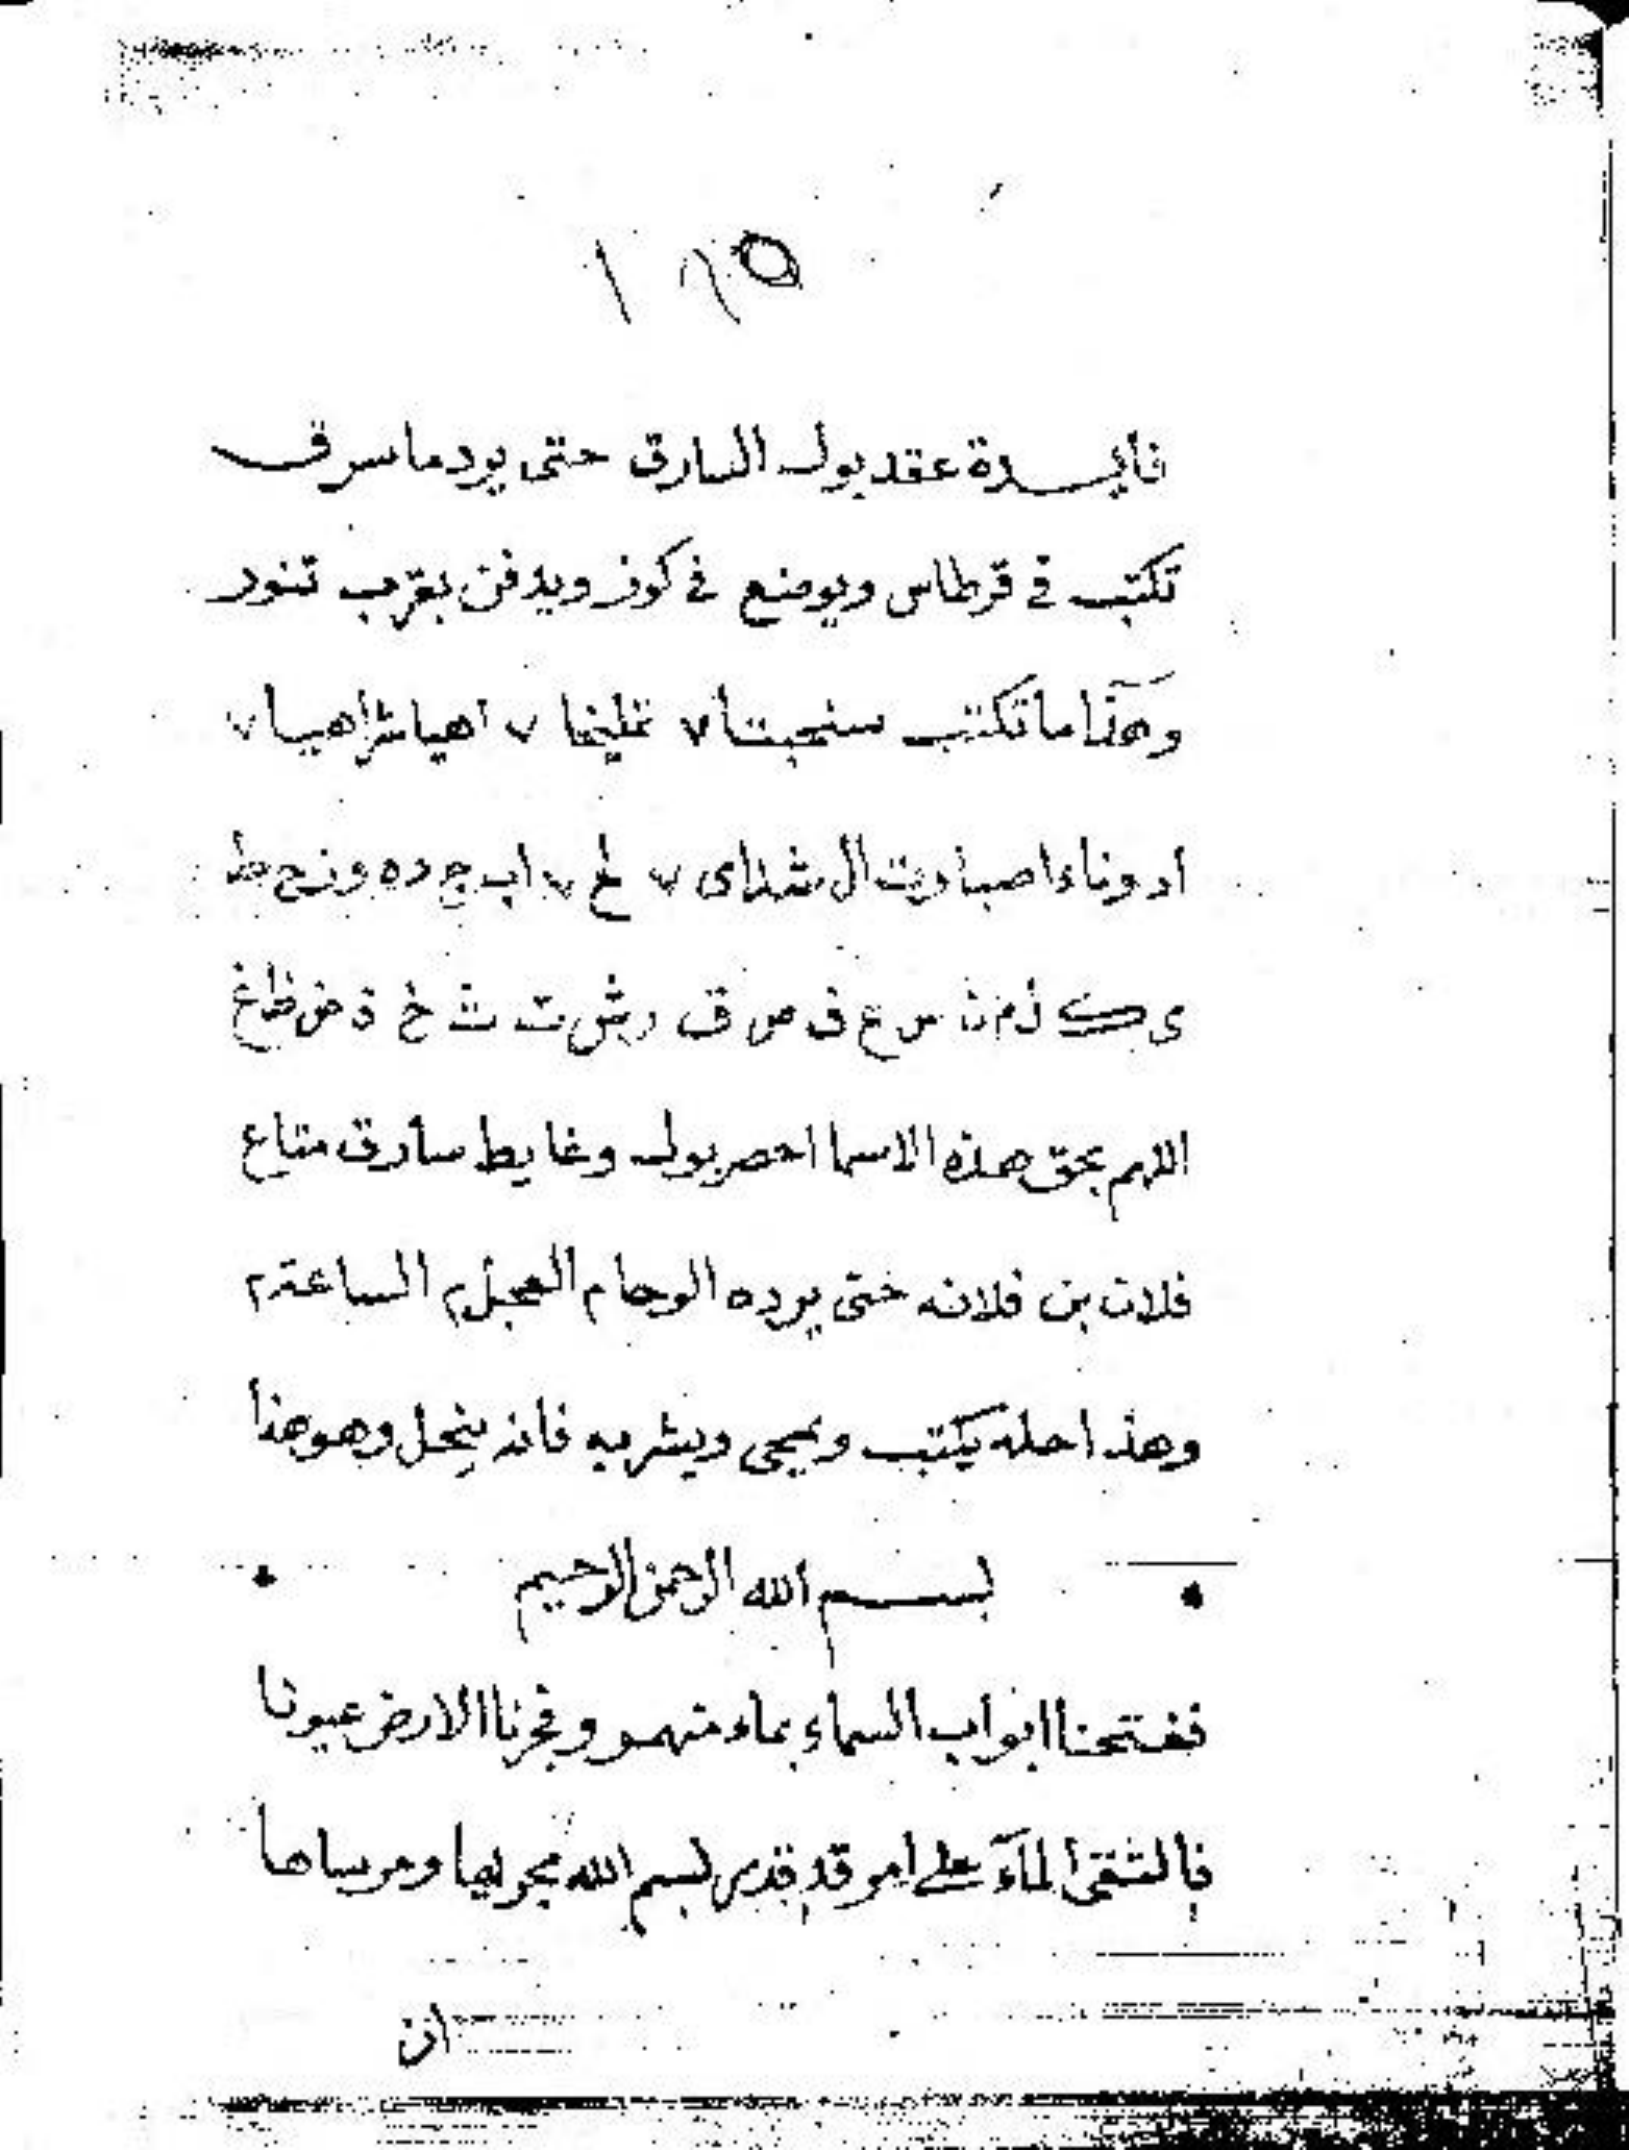 ١١٥
فايدة عقد بول السارق حتى يرد ما سرق
تكتب في قرطاس ويوضع في كوز ويدفن بقرب تنور
وهذا ما تكتب ٧ ٧ اهيا شراهيا ٧
ادوناء اصباوت ال شداى ٧ ٧ اب ج د ه و ز ح ط
ى ك ل م ن س ع ف ص ق ر ش ت ث خ ذ ض ظ غ
اللهم بحق هذه الاسما احصر بول وغايط سارق متاع
فلان بن فلانه حتى يرده الوحا م العجل م الساعة م
وهذا حله يكتب ويمحى ويشربه فانه ينحل وهو هذا
بسم الله الرحمن الرحيم
ففتحنا ابواب السماء بماء منهمر وفجرنا الارض عيونا
فالتقى المآء على امر قد قدر بسم الله مجريها ومرساها
ان